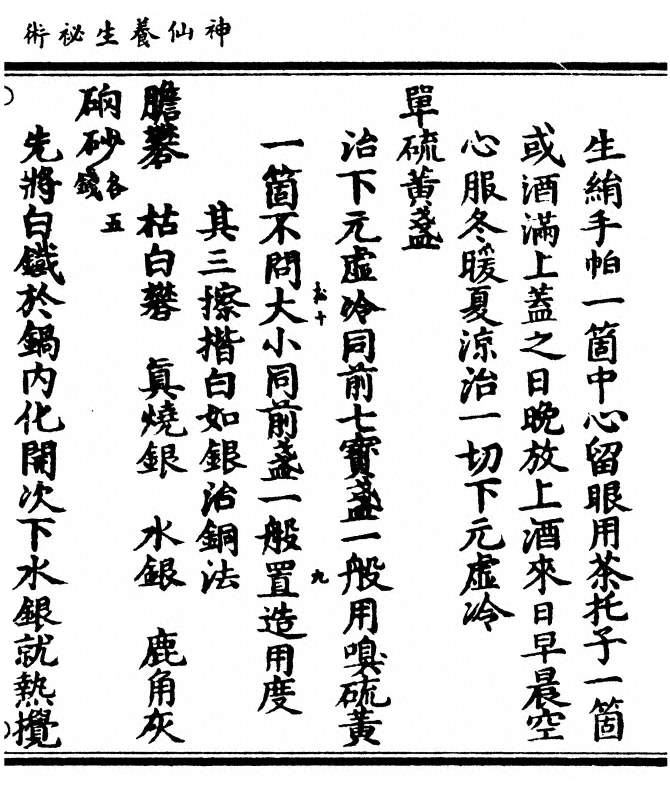 神仙養生祕術
生絹手帕一箇中心留眼用茶托子一箇
或酒滿上蓋之日晚放上酒來日早晨空
心服冬暖夏涼治一切下元虛冷
單硫黃盞
治下元虛冷同前七寶盞一般用嗅硫黃
一箇不問大小同前盞一般置造用度
其三擦揩白如銀治銅法
膽礬 枯白礬 眞燒銀 水銀 鹿角灰
硇砂各五錢
先將白鑞於鍋內化開次下水銀就熱攪
九